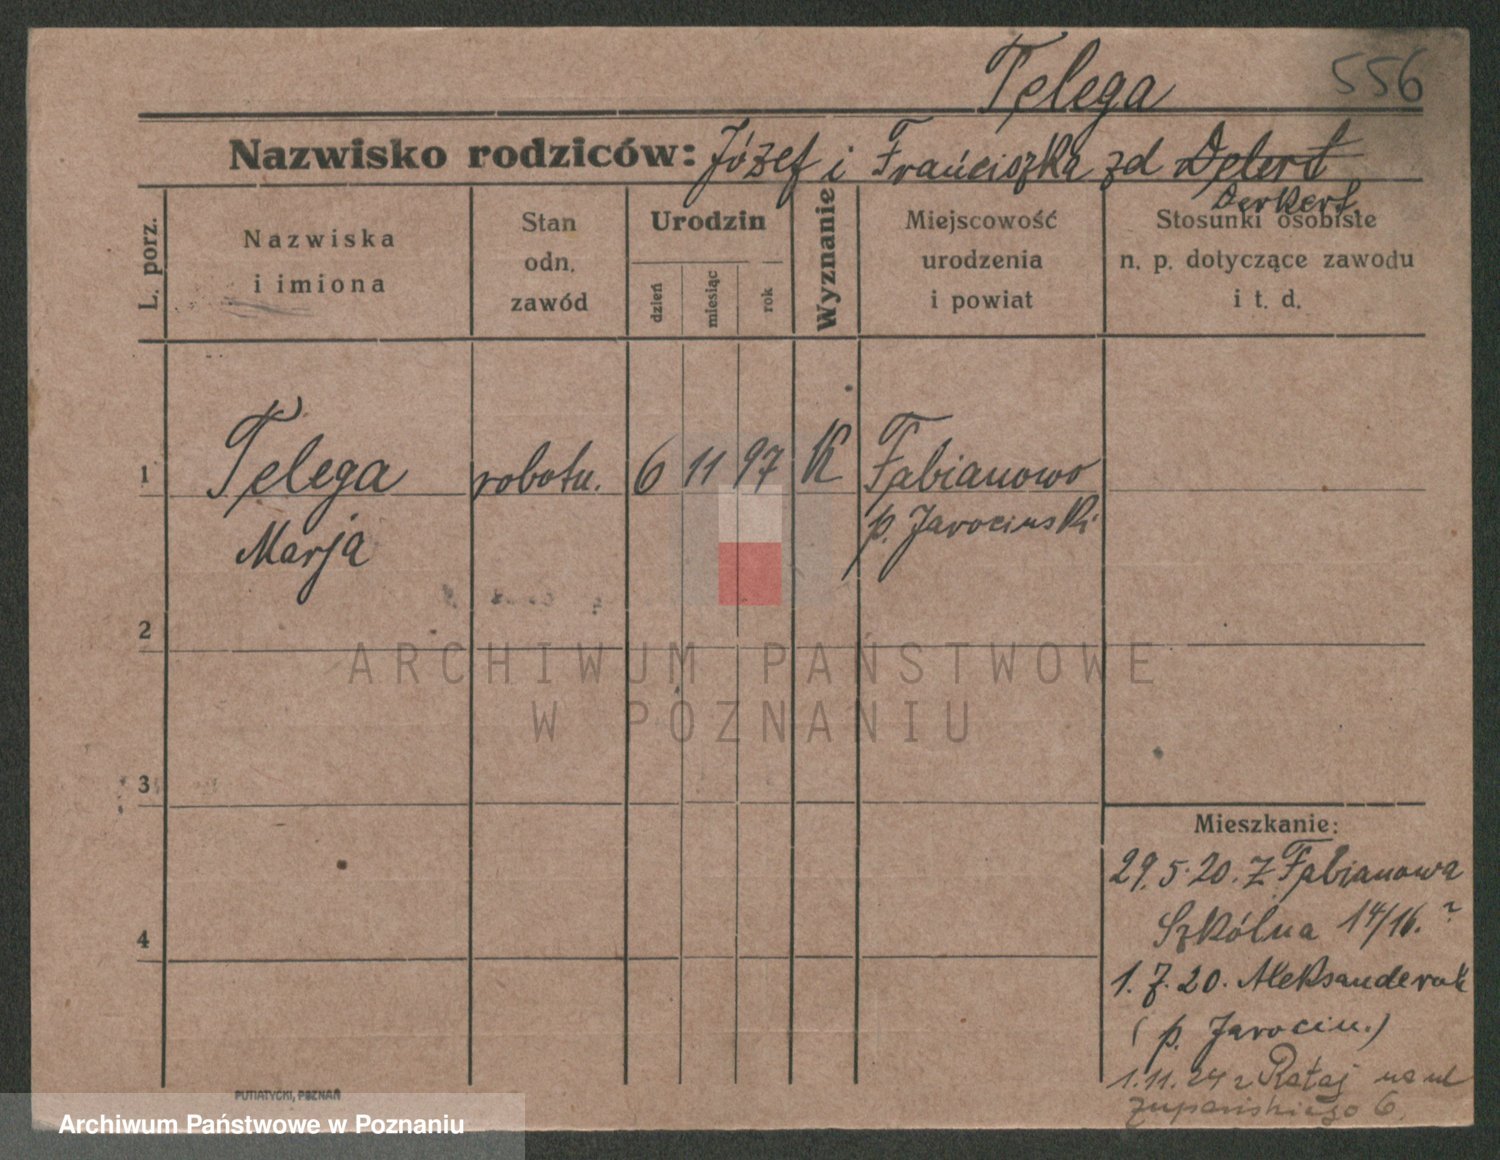 Telega
556
Nazwisko rodziców: Józef i Franciszka zd Delert
Derkert
L. porz.
Nazwiska
i imiona
Stan
odn.
zawód
Urodzin
dzień
miesiąc
rok
Wyznanie
Miejscowość
urodzenia
i powiat
Stosunki osobiste
n. p. dotyczące zawodu
i t. d.
1
Telega
Marja
robotn.
6
11
97
K
Fabianowo
p. Jarocinski
2
3
4
Mieszkanie:
29.5.20. z Fabianowa
Szkólna 14/16. ?
1.7.20. Aleksandrowo
( p. Jarocin.)
1.11.24 z Rataj na ul
Zupańskiego 6.
PUTIATYCKI, POZNAŃ
ARCHIWUM PAŃSTWOWE
W POZNANIU
Archiwum Państwowe w Poznaniu